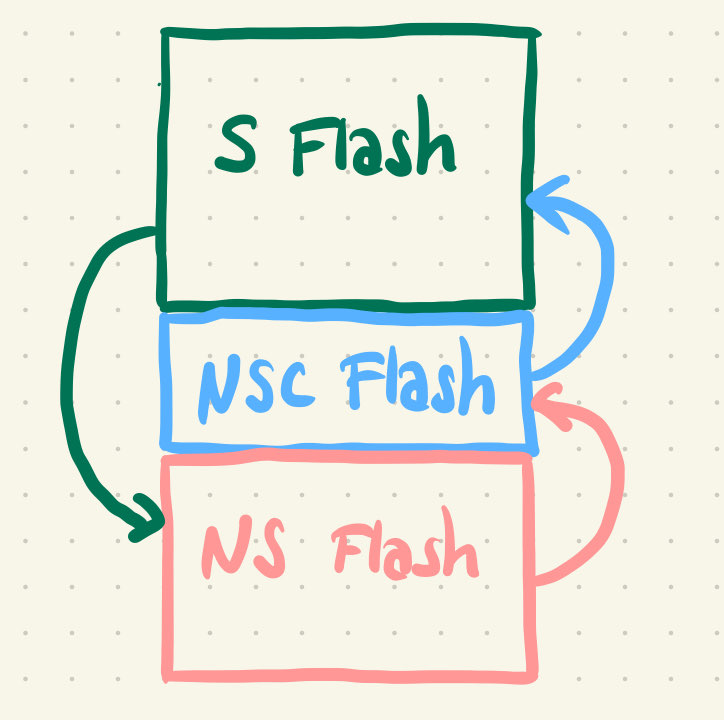 S Flash
NSC Flash
NS Flash